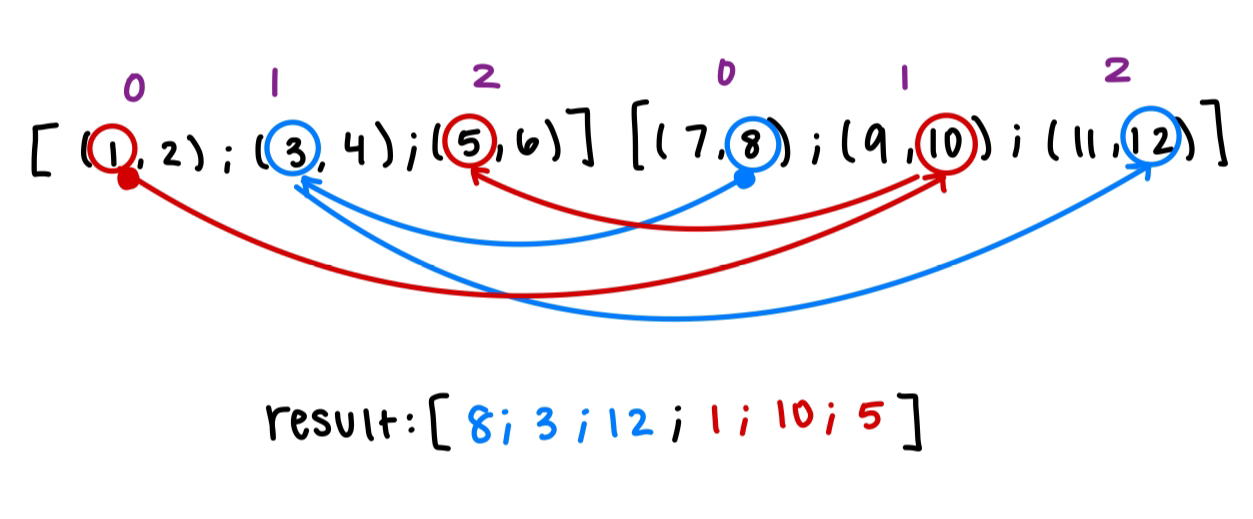 0 1 2 0 1 2
[(1,2);(3,4);(5,6)] [(7,8);(9,10);(11,12)]
result:[8;3;12;1;10;5]